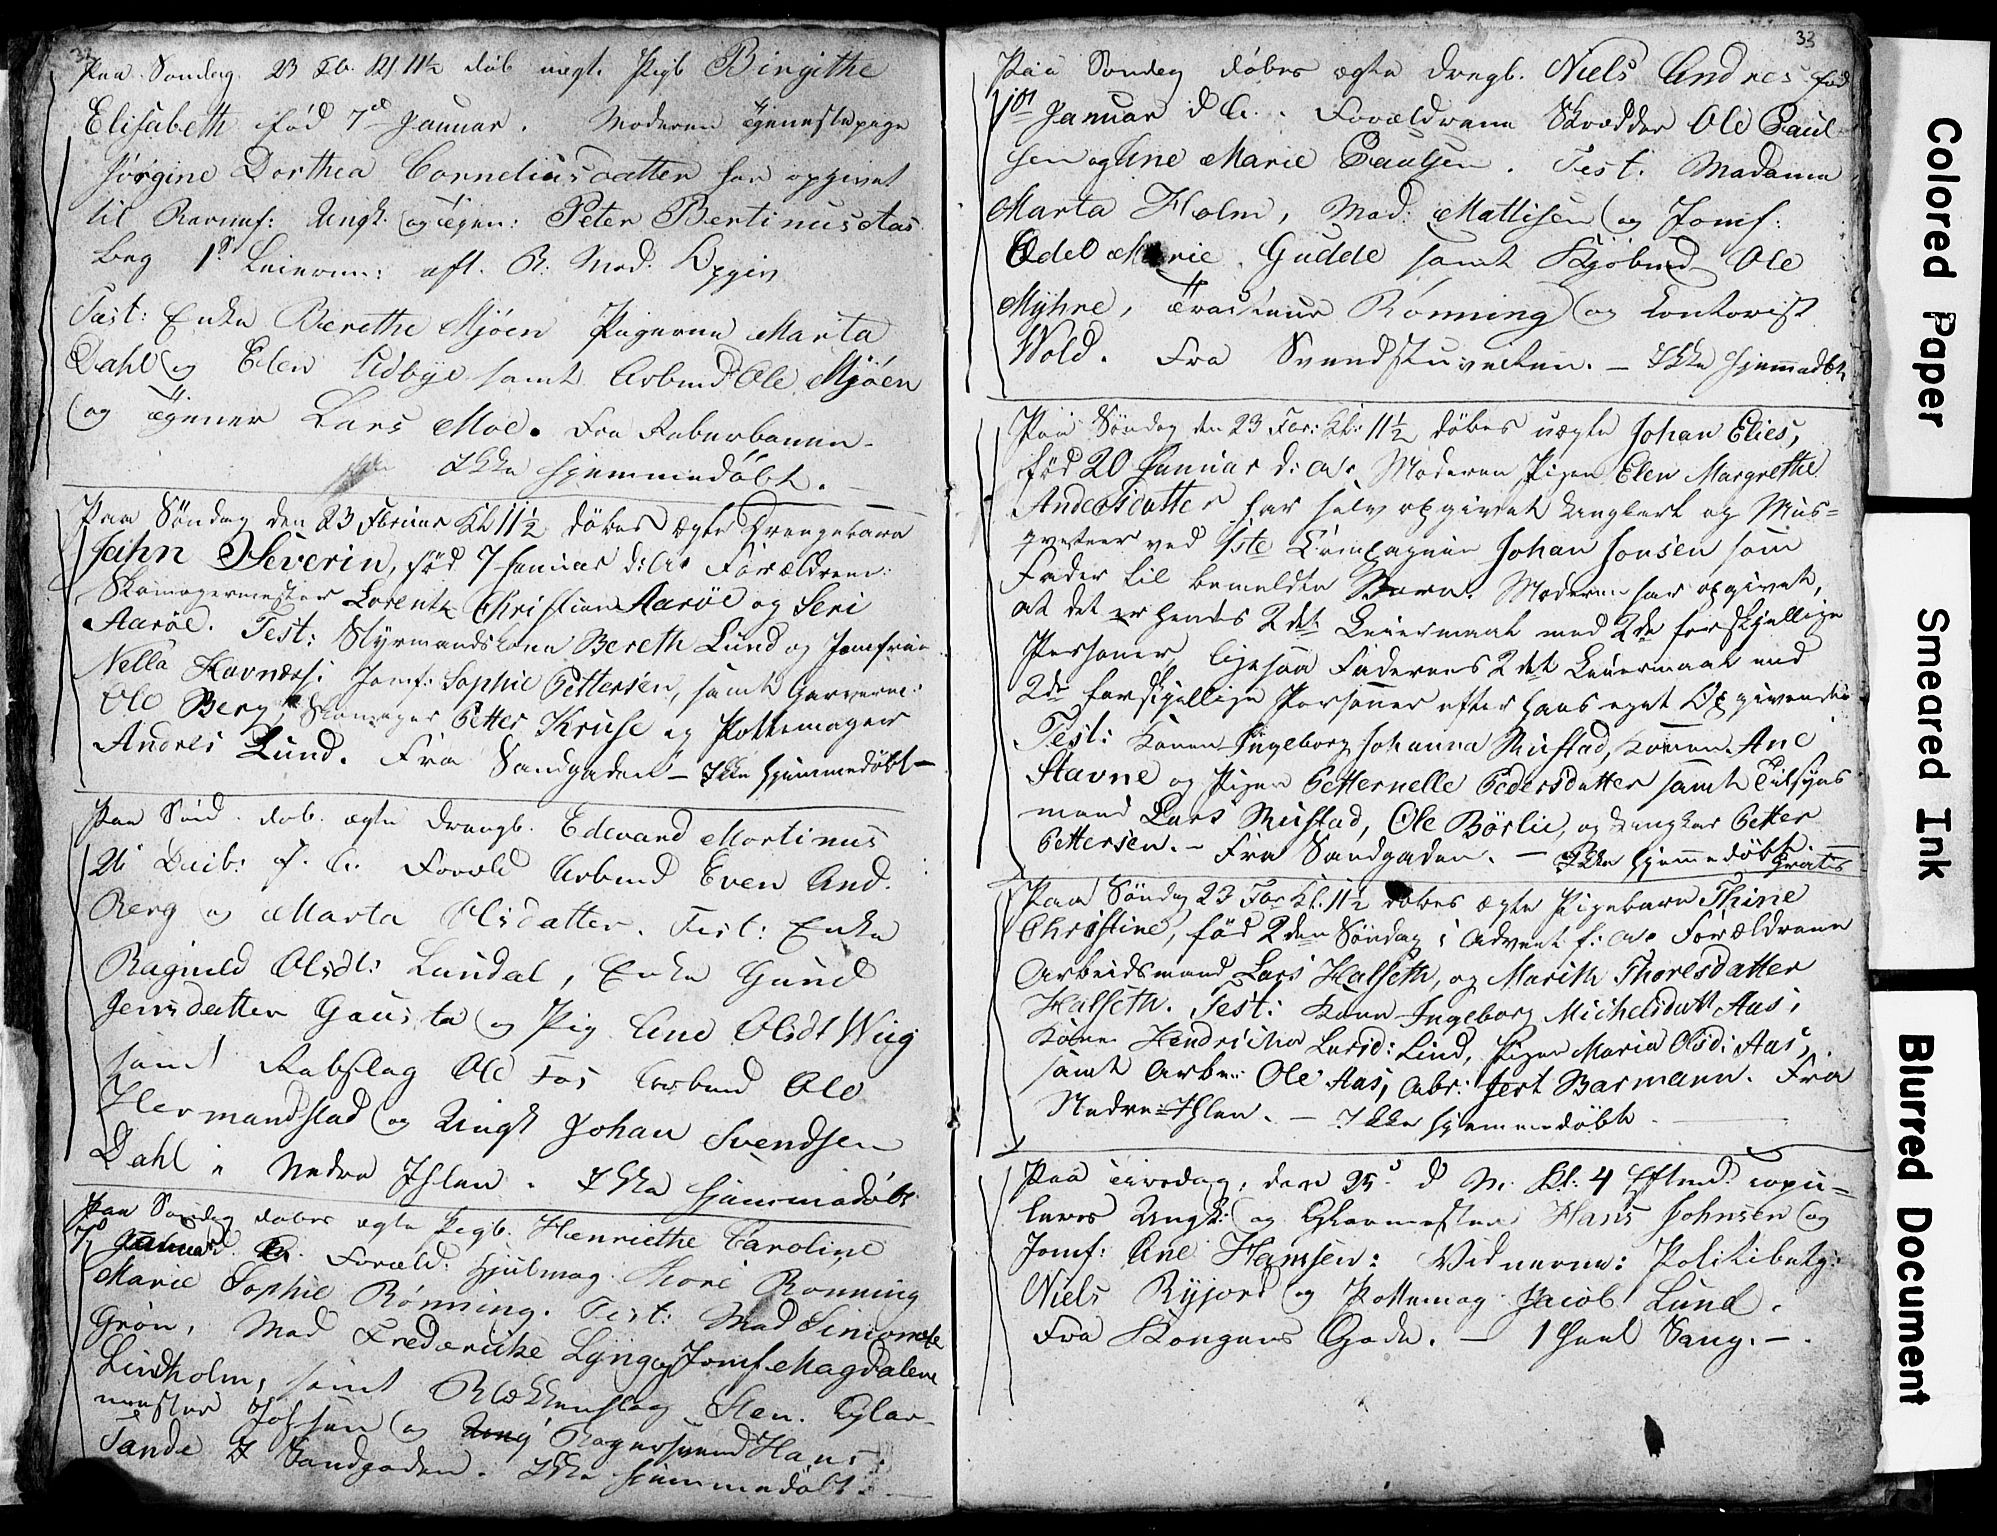 Paa Søndag 23 Fb. Kl 11½ døb. uægt. Pigb Birgithe
Elisabeth fød 7de Januar. Moderen Tjenestepige
Jørgine Dorthea Corneliusdatter har opgivet
til Barnef: Ungk. og Tjen: Peter Bertinus Aas
berg 1st Leierm: eft. B. Mod. Opgiv
Test: Enke Berethe Mjøen Pigerne Marta
Dahl og Elen Lidbye samt Arbmd Ole Mjøen
og Tjener Lars Moe. Fra Raburbanen
Ikke hjemmedøbt.
Paa Søndag den 23 Februar Kl 11½ døbes ægte Drengebarn
Jahn Severin, fød 7 Januar d: A: Forældrene:
Skomagermester Lorentz Christian Aarøe og Seri
Aarøe. Test: Styrmandskone Bereth Lund og Jomfrue
Nella Havnæs: Jomf: Sophie Pettersen, samt Garverne:
Ole Berg, Skomager Petter Kruse og Pottemager
Andres Lund. Fra Sandgaden – Ikke hjemmedøbt –
Paa Sønd. døb. ægte Drengb. Edevard Mortinus
26 Decb: f. A. Foræld Arbmd Even And.
Berg og Marta Olsdatter. Test: Enke
Ragnild Olsdt: Laudal, Enke Gunild
Jensdatter Gausta og Pig Ane Olsdt Wiig
samt Rabslag Ole Fos Arbmd Ole
Hermandstad og Ungk Johan Svendsen
Dahl i Nedre Ihlen. Ikke hjemmedøbt
Paa Søndag døbes ægte Pigb. Henriethe Caroline
7de Januar d. A. Foræld. Hjulmag. Thore Rønning
Marie Sophie Rønning. Test: Mad Simonette
Grøn, Mad Fredericke Lyng og Jomf. Magdalene
Lindholm, samt Blækkenslag Sten. Glar-
mester Johsen og Bagersvend Hans
Sande I Sandgaden. Ikke hjemmedøbt. –
33
Paa Søndag døbes ægte Drengb. Niels Andres fød
1st Januar d A. Forældrene Skrædder Ole Paul-
sen og Ane Marie Paulsen. Test. Madame
Marta Holm, Mad: Mattisen og Jomf:
Edel Marie Gudde samt Kjøbmd Ole
Myhre, Træsteur Rønning og Kontorist
Wold. Fra Svendstuveiten. – Ikke hjemmedbt
Paa Søndag den 23 Febr: Kl: 11½ døbes uægte Johan Elies,
fød 20 Januar d: A: Moderen Pigen Elen Margrethe
Andersdatter har selv opgivet Ungkarl og Mus=
queteer ved 1ste Compagnie Johan Jonsen som
Fader til bemeldte Barn. Moderen har opgivet,
at det er hendes 2det Leiermaal med 2de forskjellige
Personer, ligesaa Faderens 2det Leiermaal med
2de forskjellige Personer efter hans eget Opgivende
Test: Konen Ingeborg Johanna Mustad, Konen Ane
Stavne og Pigen Petternelle Pedersdatter samt Tilsyns
mand Lars Mustad, Ole Børlie, og Ungkar Petter
Pettersen. – Fra Sandgaden. – Ikke hjemmedøbt –
Gratis
Paa Søndag 23 Febr Kl: 11½ døbes ægte Pigebarn Thine
Christine, fød 2den Søndag i Advent f: A: Forældrene
Arbeidsmand Lars Halseth, og Marith Thoresdatter
Halseth. Test: Kone Ingeborg Michelsdatt Aas,
Kone Hendricha Larsd: Lind, Pigen Maria Olsd: Aas,
samt Arb: Ole Aas, Abr: Gert Barmann. Fra
Nedre=Ihlen. – Ikke hjemmedøbt
Paa Tirsdag, den 25. d M. Kl: 4 Eftmd. copu=
leres Ungk: og Glarmester Hans Johnsen og
Jomf: Ane Hansen: Vidnerne: Politibetj:
Niels Ryjord og Pottemag Jacob Lund.
Fra Kongens Gade. – 1 heel Sang. –
Colored Paper
Smeared Ink
Blurred Document